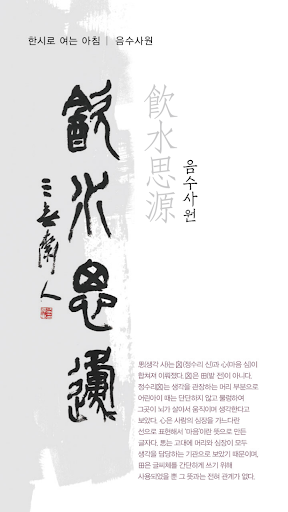 한시로 여는 아침 | 음수사원
飮水思源
음수사원
飮水思邍
思(생각 사)는 囟(정수리 신)과 心(마음 심)이
합쳐져 이뤄졌다. 囟은 田(밭 전)이 아니다.
정수리囟는 생각을 관장하는 머리 부분으로
어린아이 때는 단단하지 않고 물렁하여
그곳이 뇌가 살아서 움직이며 생각한다고
보았다. 心은 사람의 심장을 가느다란
선으로 표현해서 '마음'이란 뜻으로 만든
글자다. 思는 고대에 머리와 심장이 모두
생각을 담당하는 기관으로 보았기 때문이며,
田은 글씨체를 간단하게 쓰기 위해
사용되었을 뿐 그 뜻과는 전혀 관계가 없다.